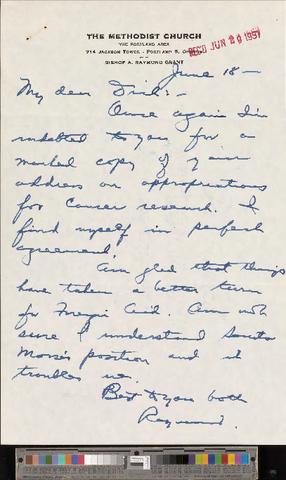 THE METHODIST CHURCH
THE PORTLAND AREA
714 JACKSON TOWER - PORTLAND 5, OREGON
BISHOP A. RAYMOND GRANT
REC'D JUN 20 1957
June 18-
My dear Dick:-
Once again I'm
indebted to you for a
marked copy of your
address on appropriations
for Cancer research. I
find myself in perfect
agreement.
Am glad that things
have taken a better turn
for Foreign Aid. Am not
sure I understand Senator
Morse's position and it
troubles me.
Best to you both
Raymond.